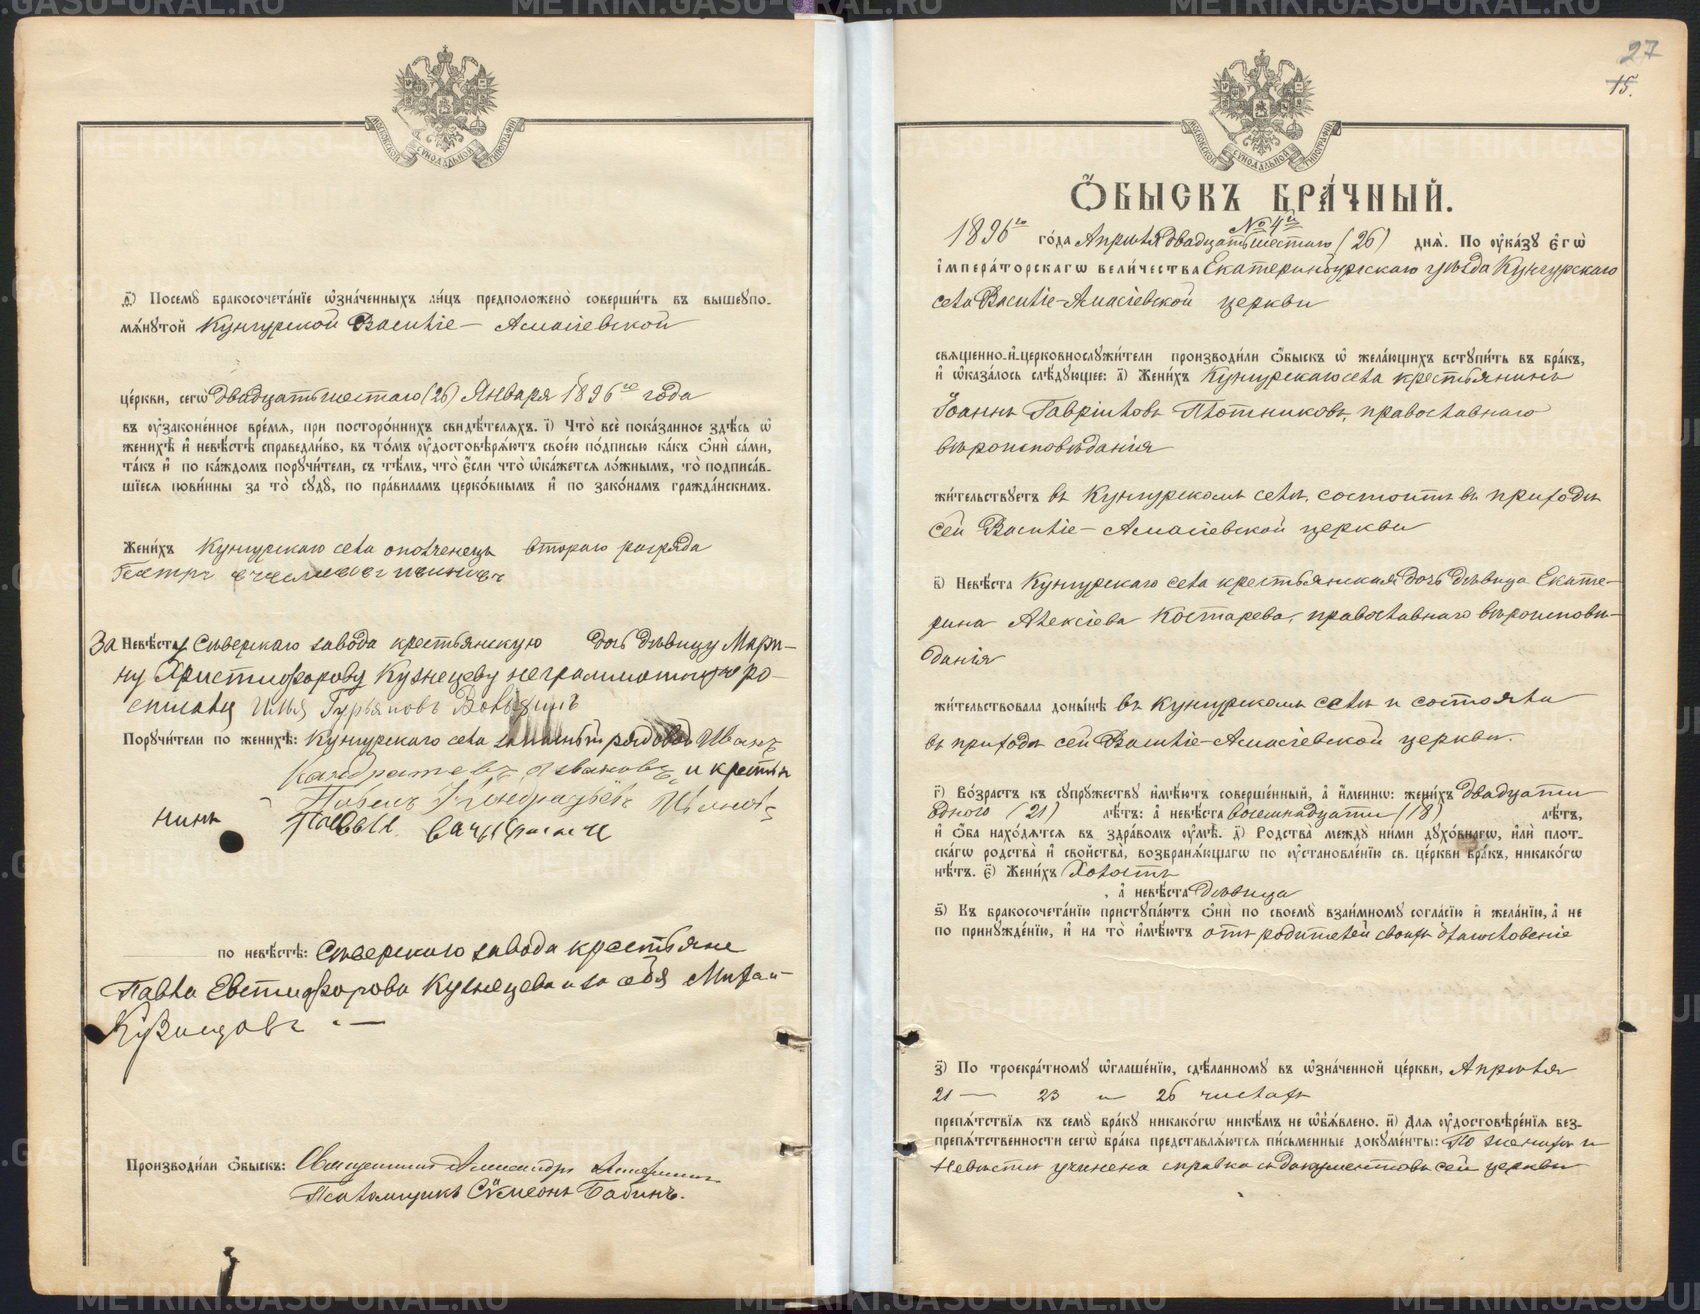 МОСКОВСКОЙ СѴНОДАЛЬНОЙ ТИПОГРАФІИ
д҃) Посемꙋ̀ бракосочета́нїе ѡ҆зна́ченныхъ ли́цъ предположено̀ соверши́ть въ вышеꙋпо-
мѧ́нꙋтой Кунгурской Василіе-Амасіевской
це́ркви, сегѡ̀ двадцать шестаго (26) Января 1896го года
въ ᲂу҆зако́ненное вре́мѧ, при посторо́ннихъ свидѣ́телѧхъ. і҃) Что̀ всѐ пока́занное здѣ́сь ѡ҆
женихѣ̀ и҆ невѣ́стѣ справедли́во, въ то́мъ ᲂу҆достовѣрѧ́ютъ свое́ю по́дписью ка́къ ѻ҆нѝ са́ми,
та́къ и҆ по ка́ждомъ порꙋчи́тели, съ тѣ́мъ, что̀ є҆́сли что̀ ѡ҆ка́жетсѧ ло́жнымъ, то̀ подписа́в-
шїесѧ пови́нны за то̀ сꙋдꙋ̀, по пра́виламъ церко́внымъ и҆ по зако́намъ гражда́нскимъ.
Жени́хъ Кунгурскаго села ополченецъ втораго разряда
Петръ
За Невѣ́ста Сѣверскаго завода крестьянскую дочь дѣвицу Мари-
ну Христифорову Кузнецову неграмотную ро-
списался Илья Гурьяновъ
Порꙋчи́тели по женихѣ̀: Кунгурскаго села запасный рядовой Иванъ
Кандратевъ и крестья
нинъ
по невѣ́стѣ: Сѣверскаго завода крестьяне
Павла Евстифорова Кузнецова и за себя Михаи-
Кузнецовъ
Производи́ли ѻ҆́быскъ: Священникъ Александръ
Псаломщикъ Сѵмеонъ Бабинъ.
27
15.
МОСКОВСКОЙ СѴНОДАЛЬНОЙ ТИПОГРАФІИ
Ѻ҆́БЫСКЪ БРА́ЧНЫЙ.
№ 4й
1896го го́да Апрѣля двадцать шестаго (26) днѧ̀. По ᲂу҆ка́зꙋ є҆гѡ̀
і҆мпера́торскагѡ вели́чества Екатеринбургскаго уѣзда Кунгурскаго
села Василіе-Амасіевской церкви
свѧще́нно-и҆-церковнослꙋжи́тели производи́ли ѻ҆́быскъ ѡ҆ жела́ющихъ встꙋпи́ть въ бра́къ,
и҆ ѡ҆каза́лось слѣ́дꙋющее: а҃) Жени́хъ Кунгурскаго села крестьянинъ
Іоаннъ Гавріиловъ Плотниковъ, православнаго
вѣроисповѣданія
жи́тельствꙋетъ въ Кунгурскомъ селѣ, состоитъ въ приходѣ
сей Василіе-Амасіевской церкви
в҃) Невѣ́ста Кунгурскаго села крестьянская дочь дѣвица Екате-
рина Алексіева Костарева, православнаго вѣроисповѣ-
данія
жи́тельствовала доны́нѣ въ Кунгурскомъ селѣ и состояла
въ приходѣ сей Василіе-Амасіевской церкви.
г҃) Во́зрастъ къ сꙋпрꙋ́жествꙋ и҆мѣ́ютъ соверше́нный, а҆ и҆́меннѡ: жени́хъ двадцати
одного (21) лѣ́тъ: а҆ невѣ́ста восемнадцати (18) лѣ́тъ,
и҆ ѻ҆́ба нахо́дѧтсѧ въ здра́вомъ ᲂу҆мѣ̀. д҃) Родства̀ междꙋ̀ ни́ми дꙋхо́внагѡ, и҆лѝ плот-
ска́гѡ родства̀ и҆ сво́йства, возбранѧ́ющагѡ по ᲂу҆становле́нїю св. це́ркви бра́къ, никако́гѡ
нѣ́тъ. є҃) Жени́хъ Холостъ
, а҆ невѣ́ста Дѣвица
ѕ҃) Къ бракосочета́нїю пристꙋпа́ютъ ѻ҆нѝ по своемꙋ̀ взаи́мномꙋ согла́сїю и҆ жела́нїю, а҆ не
по принꙋжде́нїю, и҆ на то̀ и҆мѣ́ютъ отъ родителей своихъ благословеніе
з҃) По троекра́тномꙋ ѡ҆глаше́нїю, сдѣ́ланномꙋ въ ѡ҆зна́ченной це́ркви, Апрѣля
21 — 23 и 26 числахъ
препѧ́тствїѧ къ семꙋ̀ бра́кꙋ никако́гѡ никѣ́мъ не ѡ҆б̾ѧ́влено. и҃) Длѧ ᲂу҆достовѣре́нїѧ без-
препѧ́тственности сегѡ̀ бра́ка представлѧ́ютсѧ пи́сьменные докꙋме́нты: По женихѣ и
невѣстѣ учинена справка съ документовъ сей церкви
METRIKI.GASU-URAL.RU